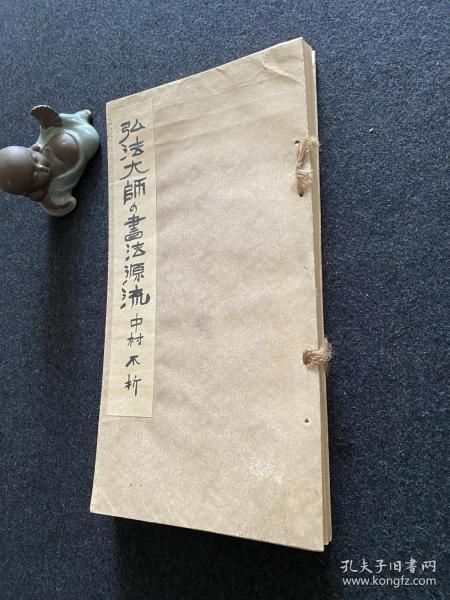 弘法大師の書法源流 中村不折
孔夫子旧书网
www.kongfz.com